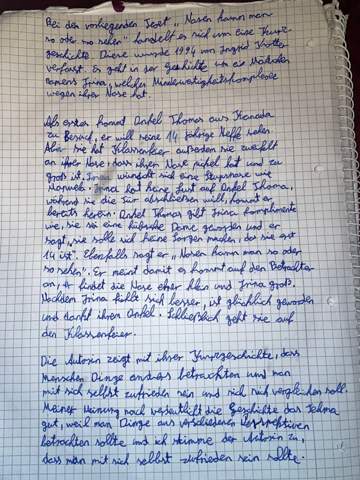 Bei dem vorliegenden Text „Nasen kann man
so oder so sehen" handelt es sich um eine Kurz-
geschichte. Diese wurde 1994 von Ingrid Kötter
verfasst. Es geht in der Geschichte um ein Mädchen
namens Irina, welches Minderwertigkeitskomplexe
wegen ihrer Nase hat.
Als erstes kommt Onkel Thomas aus Kanada
zu Besuch, er will seine 14 jährige Neffe sehen
Aber sie hat Klassenfeier außerdem sie zweifelt
an ihrer Nase, dass ihren Nase pickel hat und zu
groß ist. Irina wünscht sich eine Stupsnase wie
Manuela. Irina hat keine Lust auf Onkel Thomas,
während sie die Tür abschließen will, kommt er
bereits herein. Onkel Thomas gibt Irina komplimente
wie, sie sei eine hübsche Dame geworden und er
sagt, sie solle sich keine Sorgen machen, da sie erst
14 ist". Ebenfalls sagt er „Nasen kann man so oder
so sehen". Er meint damit es kommt auf den Betrachter
an, er findet die Nase eher klein und Irina groß.
Nachdem Irina fühlt sich besser, ist glücklich geworden
und dankt ihren Onkel. Schließlich geht sie auf
den Klassenfeier.
Die Autorin zeigt mit ihrer Kurzgeschichte, dass
Menschen Dinge anders betrachten und man
mit sich selbst zufrieden sein und sich nich vergleichen soll.
Meiner Meinung nach verdeutlicht die Geschichte das Thema
gut, weil man Dinge aus verschiedenen Perspektiven
betrachten sollte und ich stimme der Autorin zu,
dass man mit sich selbst zufrieden sein sollte.